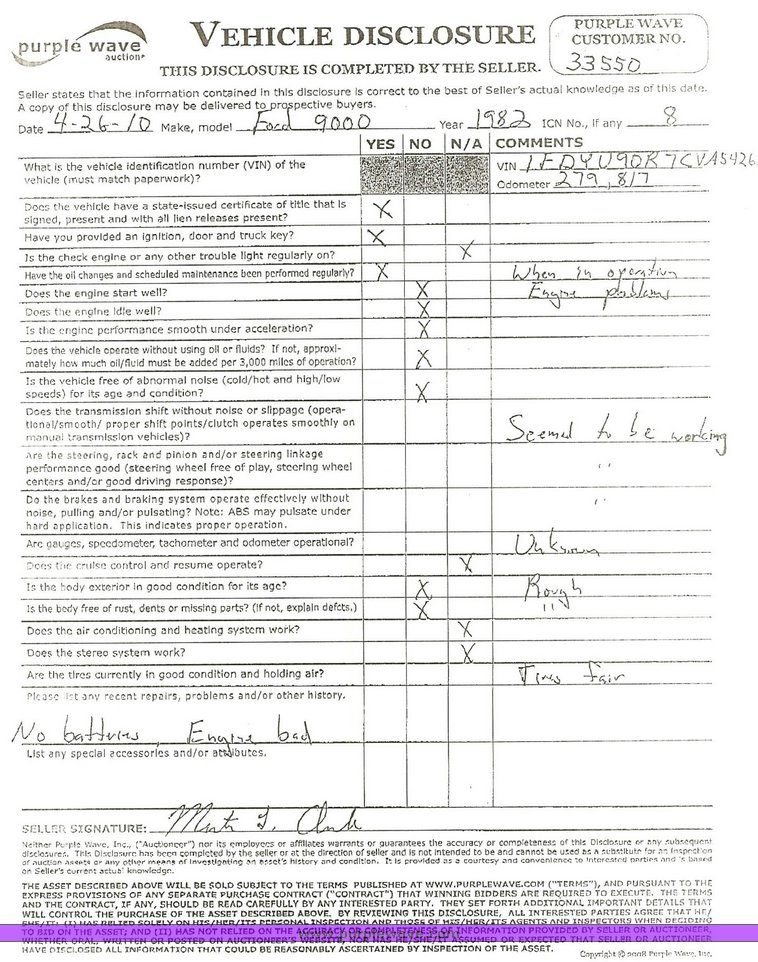 purple wave
auction®
VEHICLE DISCLOSURE
PURPLE WAVE
CUSTOMER NO.
33550
THIS DISCLOSURE IS COMPLETED BY THE SELLER.
Seller states that the information contained in this disclosure is correct to the best of Seller's actual knowledge as of this date.
A copy of this disclosure may be delivered to prospective buyers.
Date 4-26-10 Make, model Ford 9000 Year 1982 ICN No., if any 8
YES NO N/A COMMENTS
What is the vehicle identification number (VIN) of the
vehicle (must match paperwork)?
VIN 1FDYU90R7CVA5426
Odometer 279,817
Does the vehicle have a state-issued certificate of title that is
signed, present and with all lien releases present? X
Have you provided an ignition, door and truck key? X
Is the check engine or any other trouble light regularly on? X
Have the oil changes and scheduled maintenance been performed regularly? X When in operation
Does the engine start well? X Engine problems
Does the engine idle well? X
Is the engine performance smooth under acceleration? X
Does the vehicle operate without using oil or fluids? If not, approxi-
mately how much oil/fluid must be added per 3,000 miles of operation? X
Is the vehicle free of abnormal noise (cold/hot and high/low
speeds) for its age and condition? X
Does the transmission shift without noise or slippage (opera-
tional/smooth/ proper shift points/clutch operates smoothly on
manual transmission vehicles)? Seemed to be working
Are the steering, rack and pinion and/or steering linkage
performance good (steering wheel free of play, steering wheel
centers and/or good driving response)? "
Do the brakes and braking system operate effectively without
noise, pulling and/or pulsating? Note: ABS may pulsate under
hard application. This indicates proper operation. "
Are gauges, speedometer, tachometer and odometer operational? Unknown
Does the cruise control and resume operate? X
Is the body exterior in good condition for its age? X Rough
Is the body free of rust, dents or missing parts? (If not, explain defcts.) X "
Does the air conditioning and heating system work? X
Does the stereo system work? X
Are the tires currently in good condition and holding air? Tires fair
Please list any recent repairs, problems and/or other history.
No batteries, Engine bad
List any special accessories and/or attributes.
SELLER SIGNATURE:
Neither Purple Wave, Inc., ("Auctioneer") nor its employees or affiliates warrants or guarantees the accuracy or completeness of this Disclosure or any subsequent
disclosures. This Disclosure has been completed by the seller or at the direction of seller and is not intended to be and cannot be used as a substitute for an inspection
of auction assets or any other means of investigating an asset's history and condition. It is provided as a courtesy and convenience to interested parties and is based
on Seller's current actual knowledge.
THE ASSET DESCRIBED ABOVE WILL BE SOLD SUBJECT TO THE TERMS PUBLISHED AT WWW.PURPLEWAVE.COM ("TERMS"), AND PURSUANT TO THE
EXPRESS PROVISIONS OF ANY SEPARATE PURCHASE CONTRACT ("CONTRACT") THAT WINNING BIDDERS ARE REQUIRED TO EXECUTE. THE TERMS
AND CONTRACT, IF ANY, SHOULD BE READ CAREFULLY BY ANY INTERESTED PARTY. THEY SET FORTH ADDITIONAL IMPORTANT DETAILS THAT
WILL CONTROL THE PURCHASE OF THE ASSET DESCRIBED ABOVE. BY REVIEWING THIS DISCLOSURE, ALL INTERESTED PARTIES AGREE THAT HE/
SHE/IT: (I) HAS RELIED SOLELY ON HIS/HER/ITS PERSONAL INSPECTION AND THOSE OF HIS/HER/ITS AGENTS AND INSPECTORS WHEN DECIDING
TO BID ON THE ASSET; AND (II) HAS NOT RELIED ON THE ACCURACY OR COMPLETENESS OF INFORMATION PROVIDED BY SELLER OR AUCTIONEER,
WHETHER ORAL, WRITTEN OR POSTED ON AUCTIONEER'S WEBSITE, NOR HAS HE/SHE/IT ASSUMED OR EXPECTED THAT SELLER OR AUCTIONEER
HAVE DISCLOSED ALL INFORMATION THAT COULD BE REASONABLY ASCERTAINED BY INSPECTION OF THE ASSET.
www.purplewave.com
Copyright © 2008 Purple Wave, Inc.